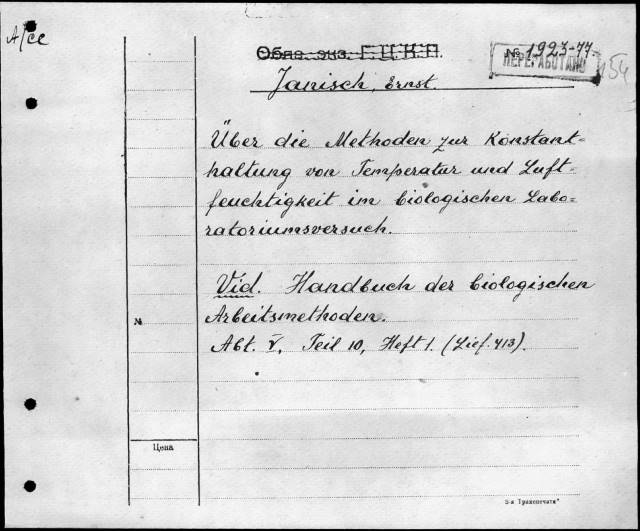 Alce
Обяз. экз. Г.Ц.К.П.
№ 1923-77
ПЕРЕРАБОТАНО
154
Janisch, Ernst.
Über die Methoden zur Konstant-
haltung von Temperatur und Luft-
feuchtigkeit im biologischen Labo-
ratoriumsversuch.
Vid. Handbuch der biologischen
Arbeitsmethoden.
№
Abt. V, Teil 10, Heft 1. (Lief. 413).
Цена